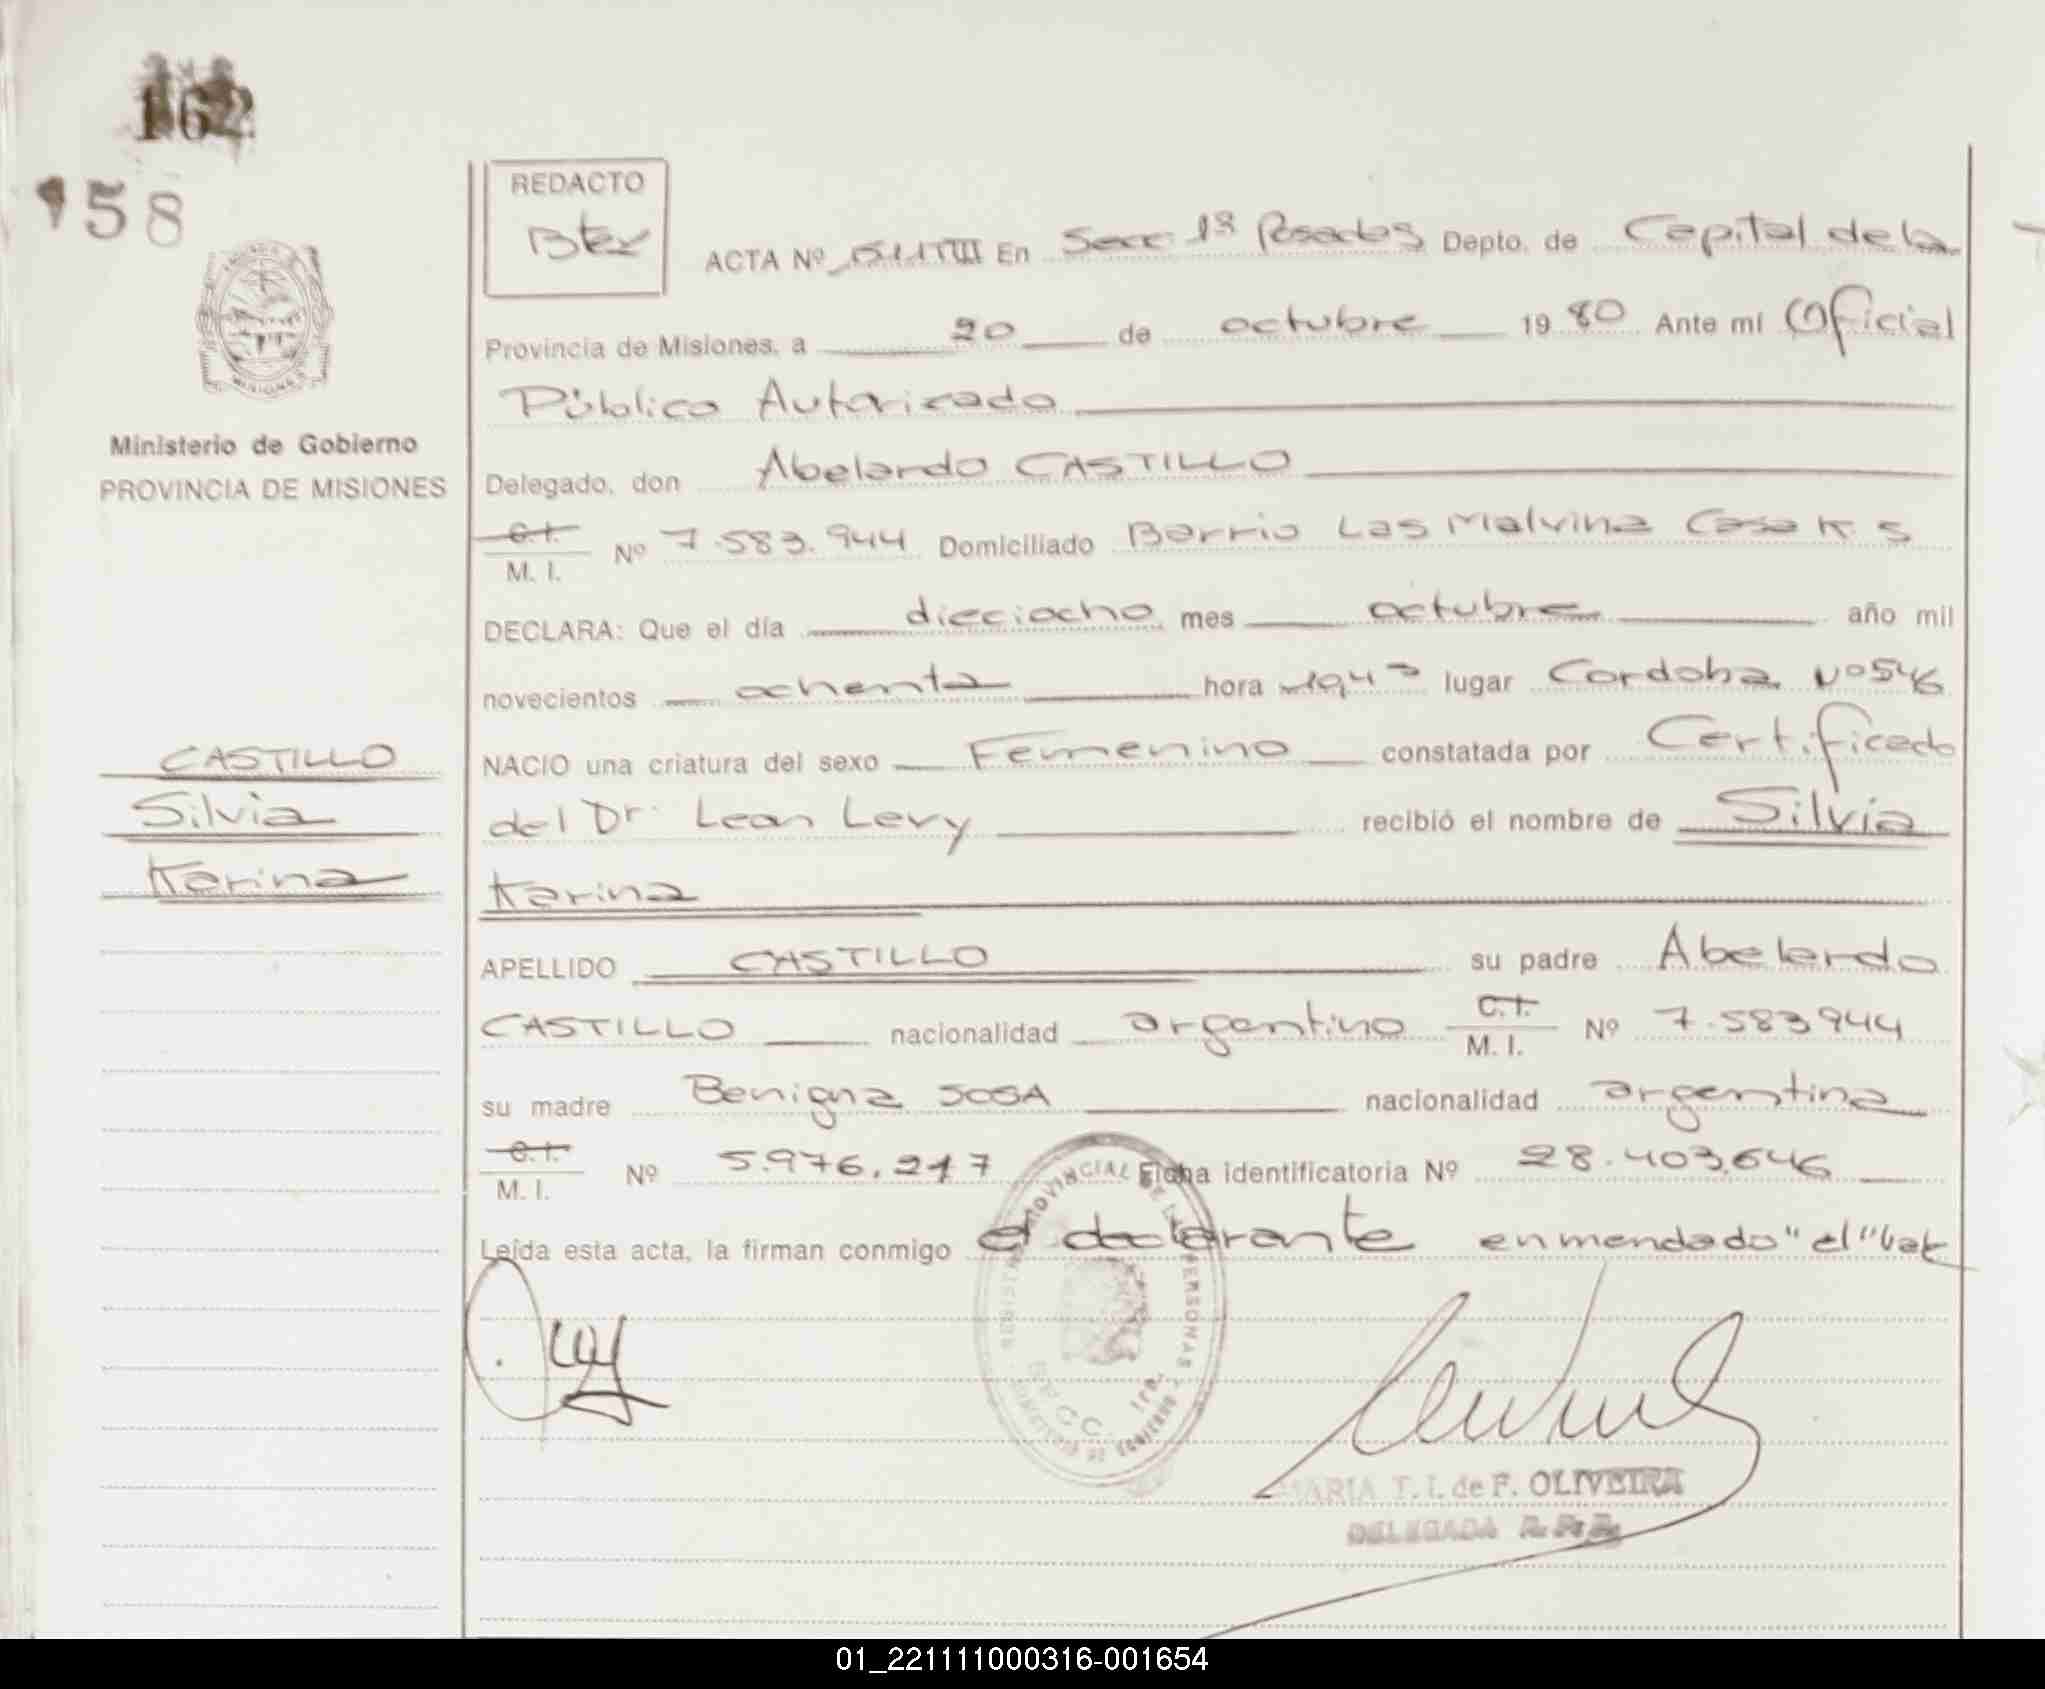 162
58
REDACTO
ACTA Nº En Secc 1ª Posadas Depto. de Capital de la
Provincia de Misiones, a 20 de octubre 19 80 Ante mí Oficial
Público Autorizado
Ministerio de Gobierno
PROVINCIA DE MISIONES
Delegado, don Abelardo CASTILLO
C.I.
M. I. Nº 7.583.944 Domiciliado Barrio Las Malvina Casa K. 5
DECLARA: Que el día dieciocho mes octubre año mil
novecientos ochenta hora lugar Cordoba Nº 546
CASTILLO
Silvia
Karina
NACIO una criatura del sexo Femenino constatada por Certificado
del Dr. Leon Levy recibió el nombre de Silvia
Karina
APELLIDO CASTILLO su padre Abelardo
CASTILLO nacionalidad argentino C.I. M. I. Nº 7.583944
su madre Benigna SOSA nacionalidad argentina
C.I.
M. I. Nº 5.976.217 Ficha identificatoria Nº 28.403.646
Leída esta acta, la firman conmigo el declarante enmendado "el"
MARIA T. I. de F. OLIVEIRA
DELEGADA
01_221111000316-001654